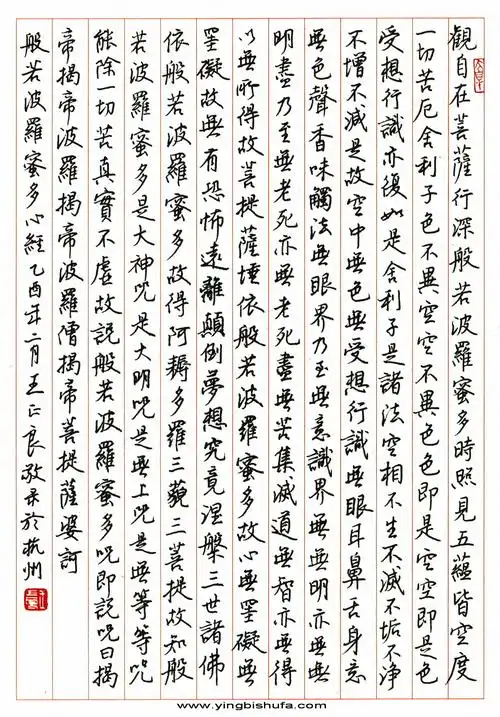 觀自在菩薩行深般若波羅蜜多時照見五蘊皆空度
一切苦厄舍利子色不異空空不異色色即是空空即是色
受想行識亦復如是舍利子是諸法空相不生不滅不垢不淨
不增不減是故空中無色無受想行識無眼耳鼻舌身意
無色聲香味觸法無眼界乃至無意識界無無明亦無無
明盡乃至無老死亦無老死盡無苦集滅道無智亦無得
以無所得故菩提薩埵依般若波羅蜜多故心無罣礙無
罣礙故無有恐怖遠離顛倒夢想究竟涅槃三世諸佛
依般若波羅蜜多故得阿耨多羅三藐三菩提故知般
若波羅蜜多是大神咒是大明咒是無上咒是無等等咒
能除一切苦真實不虛故說般若波羅蜜多咒即說咒曰揭
帝揭帝波羅揭帝波羅僧揭帝菩提薩婆訶
般若波羅蜜多心經 乙酉年二月王正良敬录於杭州
www.yingbishufa.com